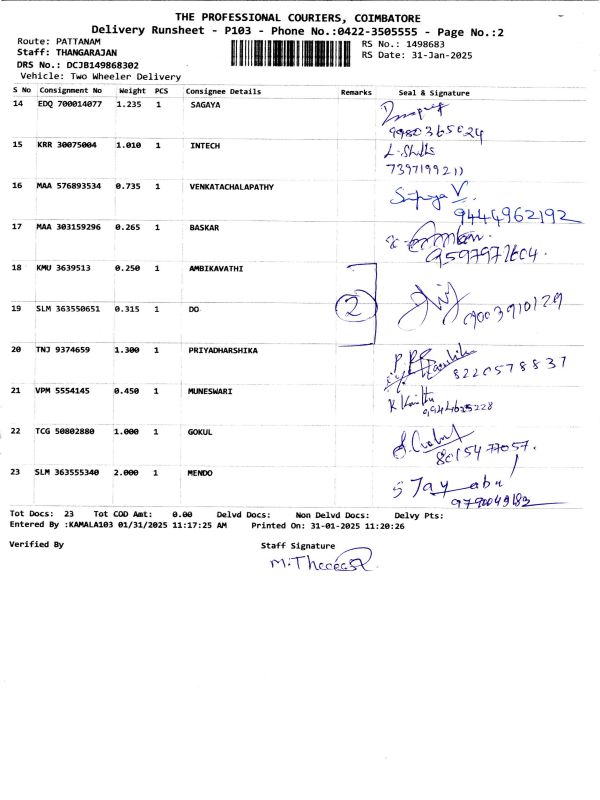 THE PROFESSIONAL COURIERS, COIMBATORE
Delivery Runsheet - P103 - Phone No.:0422-3505555 - Page No.:2
Route: PATTANAM
Staff: THANGARAJAN
DRS No.: DCJB149868302
Vehicle: Two Wheeler Delivery
RS No.: 1498683
RS Date: 31-Jan-2025
S No Consignment No Weight PCS Consignee Details Remarks Seal & Signature
14 EDQ 700014077 1.235 1 SAGAYA
9980365024
15 KRR 30075004 1.010 1 INTECH
739719921)
16 MAA 576893534 0.735 1 VENKATACHALAPATHY
9444962192
17 MAA 303159296 0.265 1 BASKAR
9597971604.
18 KMU 3639513 0.250 1 AMBIKAVATHI
2
19 SLM 363550651 0.315 1 DO
9003910129
20 TNJ 9374659 1.300 1 PRIYADHARSHIKA
8220578837
21 VPM 5554145 0.450 1 MUNESWARI
22 TCG 50802880 1.000 1 GOKUL
8015477057.
23 SLM 363555340 2.000 1 MENDO
S Jayabu
9790049183
Tot Docs: 23 Tot COD Amt: 0.00 Delvd Docs: Non Delvd Docs: Delvy Pts:
Entered By :KAMALA103 01/31/2025 11:17:25 AM Printed On: 31-01-2025 11:20:26
Verified By Staff Signature